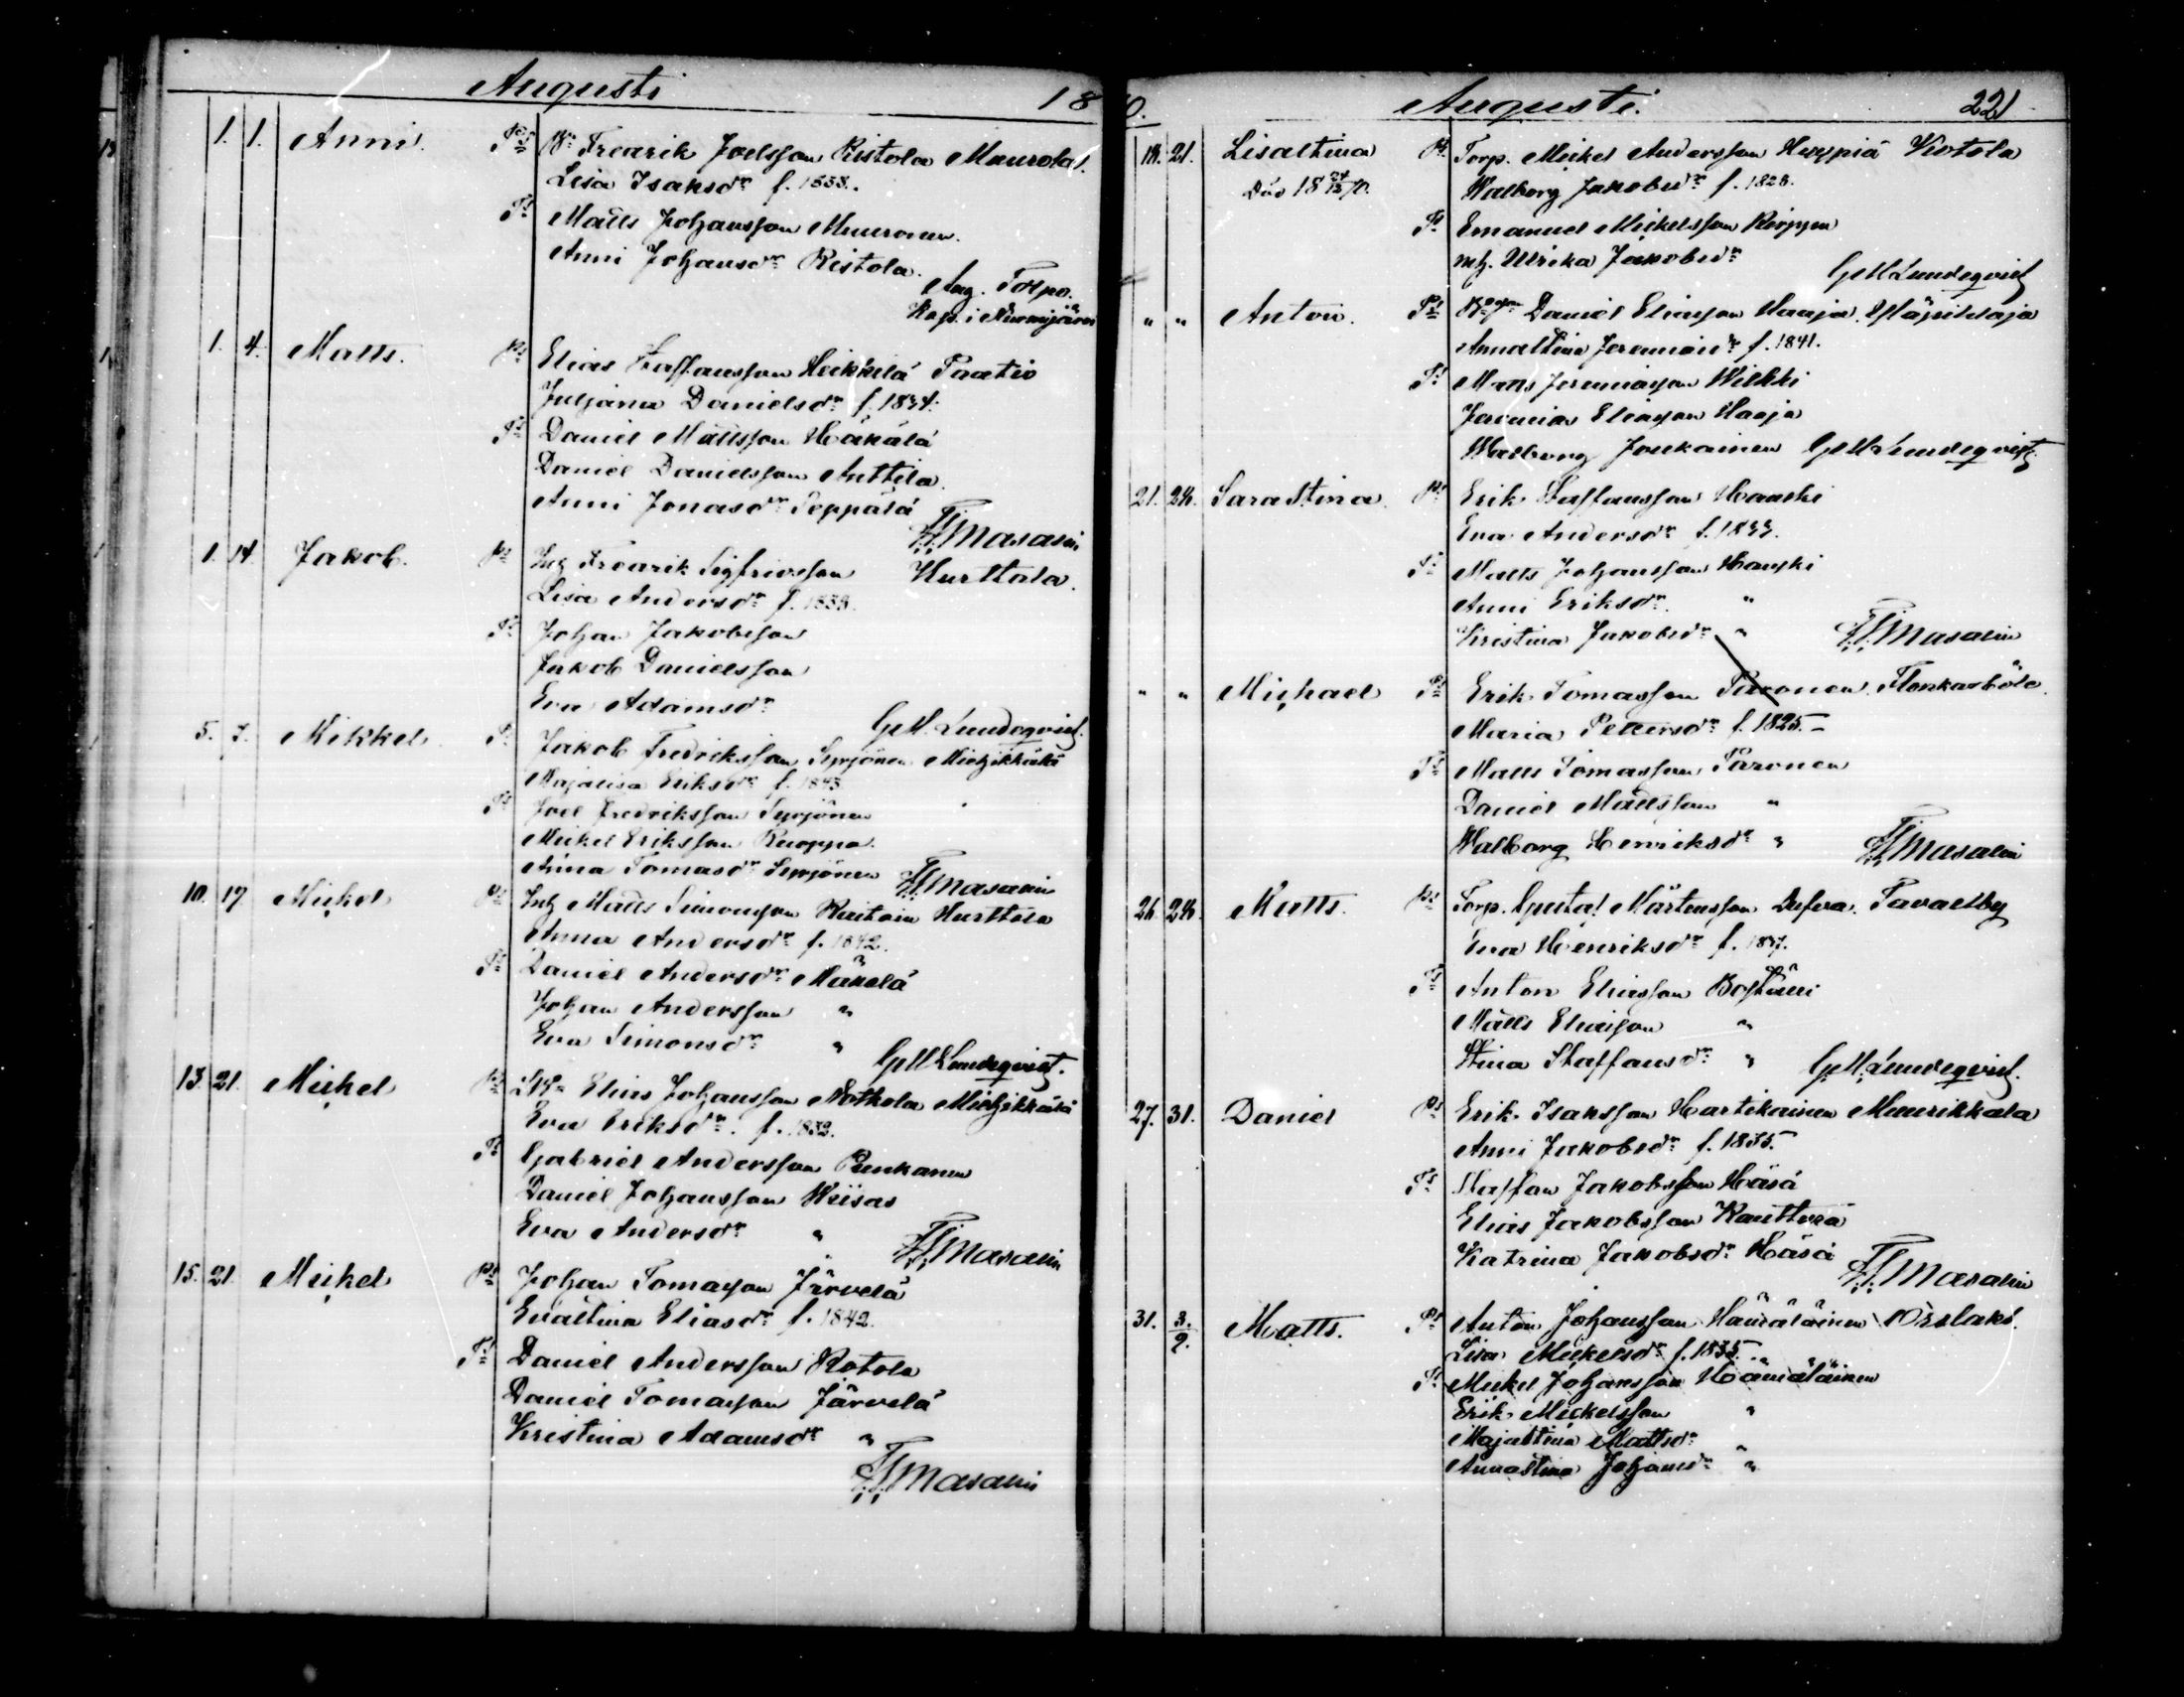 Augusti 18
1. 1. Anni. Ps Bn Fredrik Joelsson Ristola Maurola
Lisa Isaksdr f. 1838.
Ts Matts Johansson Muuronen
Anni Johansdr Ristola.
Aug. Tolpo.
Kap. i Nurmijärvi
1. 4. Matts. Ps Elias Staffansson Heikkilä Paatio
Juljana Danielsdr f. 1834.
Ts Daniel Mattsson Häkälä
Daniel Danielsson Anttila
Anni Jonasdr Seppälä
Masalin
1. 14. Jakob. Ps Inh Fredrik Sigfridsson Hurttala.
Lisa Andersdr f. 1838.
Ts Johan Jakobsson
Jakob Danielsson
Eva Adamsdr
GM Lundeqvist.
5. 7. Mikkel. Ps Jakob Fredriksson Syrjönen Miehikkälä
Majalisa Eriksdr f. 1843
Ts Joel Fredriksson Syrjönen
Mickel Eriksson Ruoppa.
Anna Tomasdr Syrjönen Masalin
10. 17. Mickel Ps Inh Matts Simonsson Raitoin Hurttala
Anna Andersdr f. 1842.
Ts Daniel Andersdr Mäkelä
Johan Andersson "
Eva Simonsdr "
GM Lundeqvist.
13. 21. Mickel Ps Elias Johansson Notkola Miehikkälä
Eva Eriksdr. f. 1832.
Ts Gabriel Andersson Punkanen
Daniel Johansson Weisas
Eva Andersdr "
Masalin
15. 21. Mickel Ps Johan Tomasson Järvelä
Evastina Eliasdr f. 1842.
Ts Daniel Andersson Kotola
Daniel Tomasson Järvelä
Kristina Adamsdr "
Masalin
0. Augusti. 221
18. 21. Lisastina Ps Torp. Mickel Andersson Heppiä Kotola
Död 18 24/12 70. Walborg Jakobsdr f. 1828.
Ts Emanuel Mickelsson Kirppu
mh. Ulrika Jakobsdr
GM Lundeqvist
" " Anton. Ps Daniel Eliasson Haaja.
Annastina Jeremiasdr f. 1841.
Ts Matts Jeremiasson Wilkki
Jeremias Eliasson Haaja
Walborg Joukainen GM Lundeqvist.
21. 28. Sarastina Ps Erik Staffansson Hanski
Eva Andersdr f. 1833.
Ts Matts Johansson Hanski
Anni Eriksdr "
Kristina Jakobsdr " Masalin
" " Michael Ps Erik Tomasson Paronen.
Maria Pettersdr f. 1825.
Ts Matts Tomasson Paronen
Daniel Mattsson "
Walborg Henriksdr " Masalin
26. 28. Matts. Ps Torp. Gustaf Mårtensson Dufva. Tavastby
Eva Henriksdr f. 1837.
Ts Anton Eliasson
Matts Eliasson "
Stina Staffansdr " GM Lundeqvist.
27. 31. Daniel Ps Erik Isaksson Hartikainen Muurikkala
Anni Jakobsdr f. 1835.
Ts Staffan Jakobsson Häsä
Elias Jakobsson Kanttura
Katrina Jakobsdr Häsä
Masalin
31. 3/9. Matts. Ps Anton Johansson Hämäläinen Orslaks.
Lisa Mickelsdr f. 1835.
Ts Mickel Johansson Hämäläinen
Erik Mickelsson "
Majastina Mattsdr "
Annastina Johansdr "